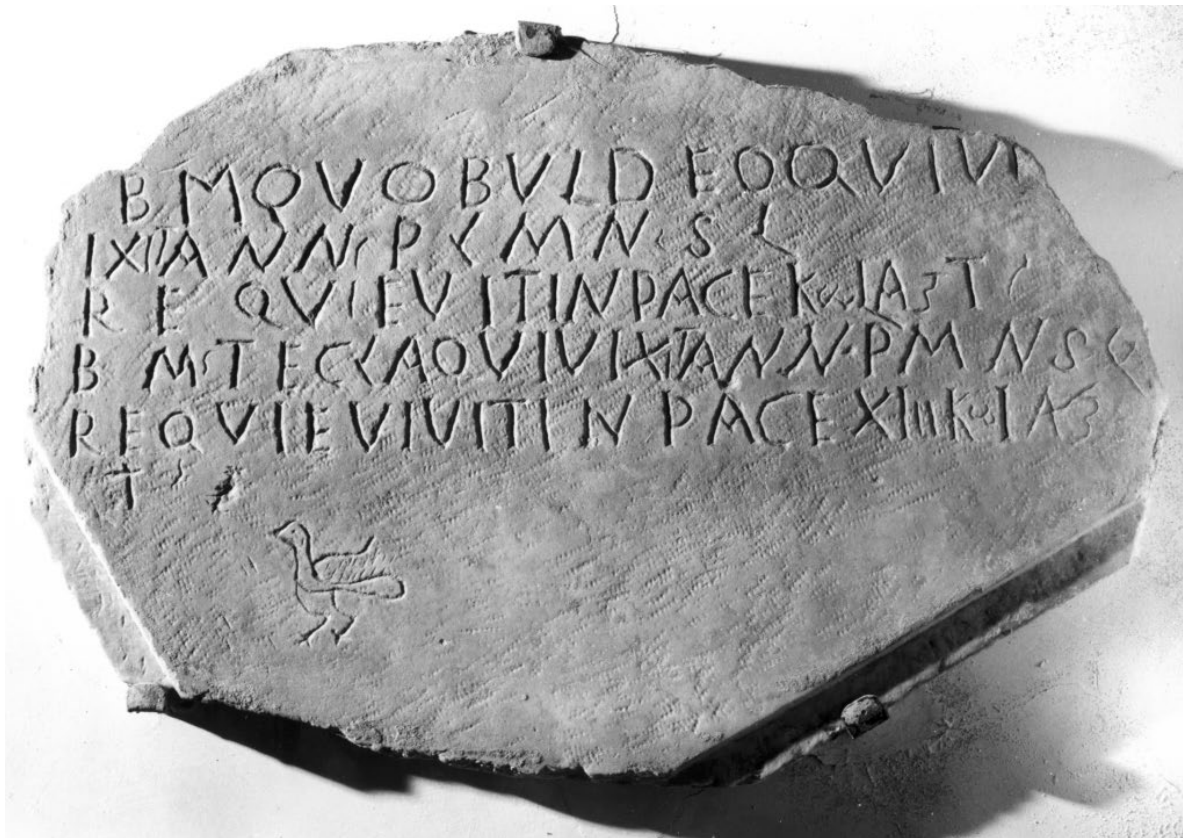 B M QVOBVLDEO QVI VI
IXIT ANN P L M N S L
REQVIEVIT IN PACE K IA T
B M TECLA QVI VIXIT ANN P M N S
REQVIEVIVIT IN PACE XIIII K IA
T S